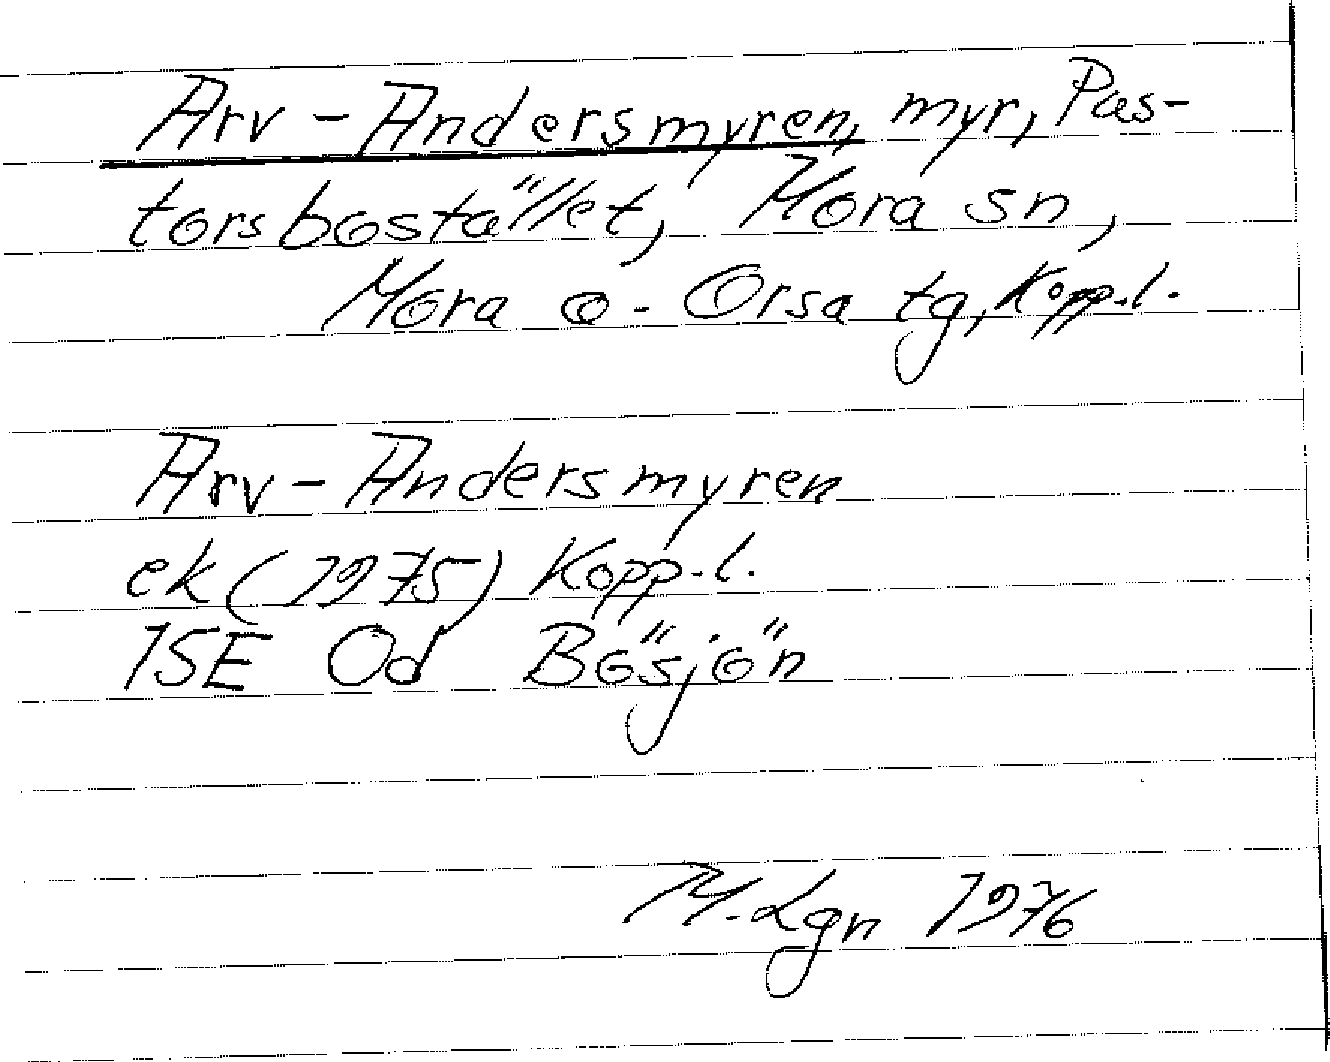 Arv-Andersmyren, myr, Pas-
torsbostället, Mora sn,
Mora o. Orsa tg, Kopp.l.
Arv-Andersmyren
ek (1975) Kopp.l.
15E Od Bösjön
M.Lgn 1976